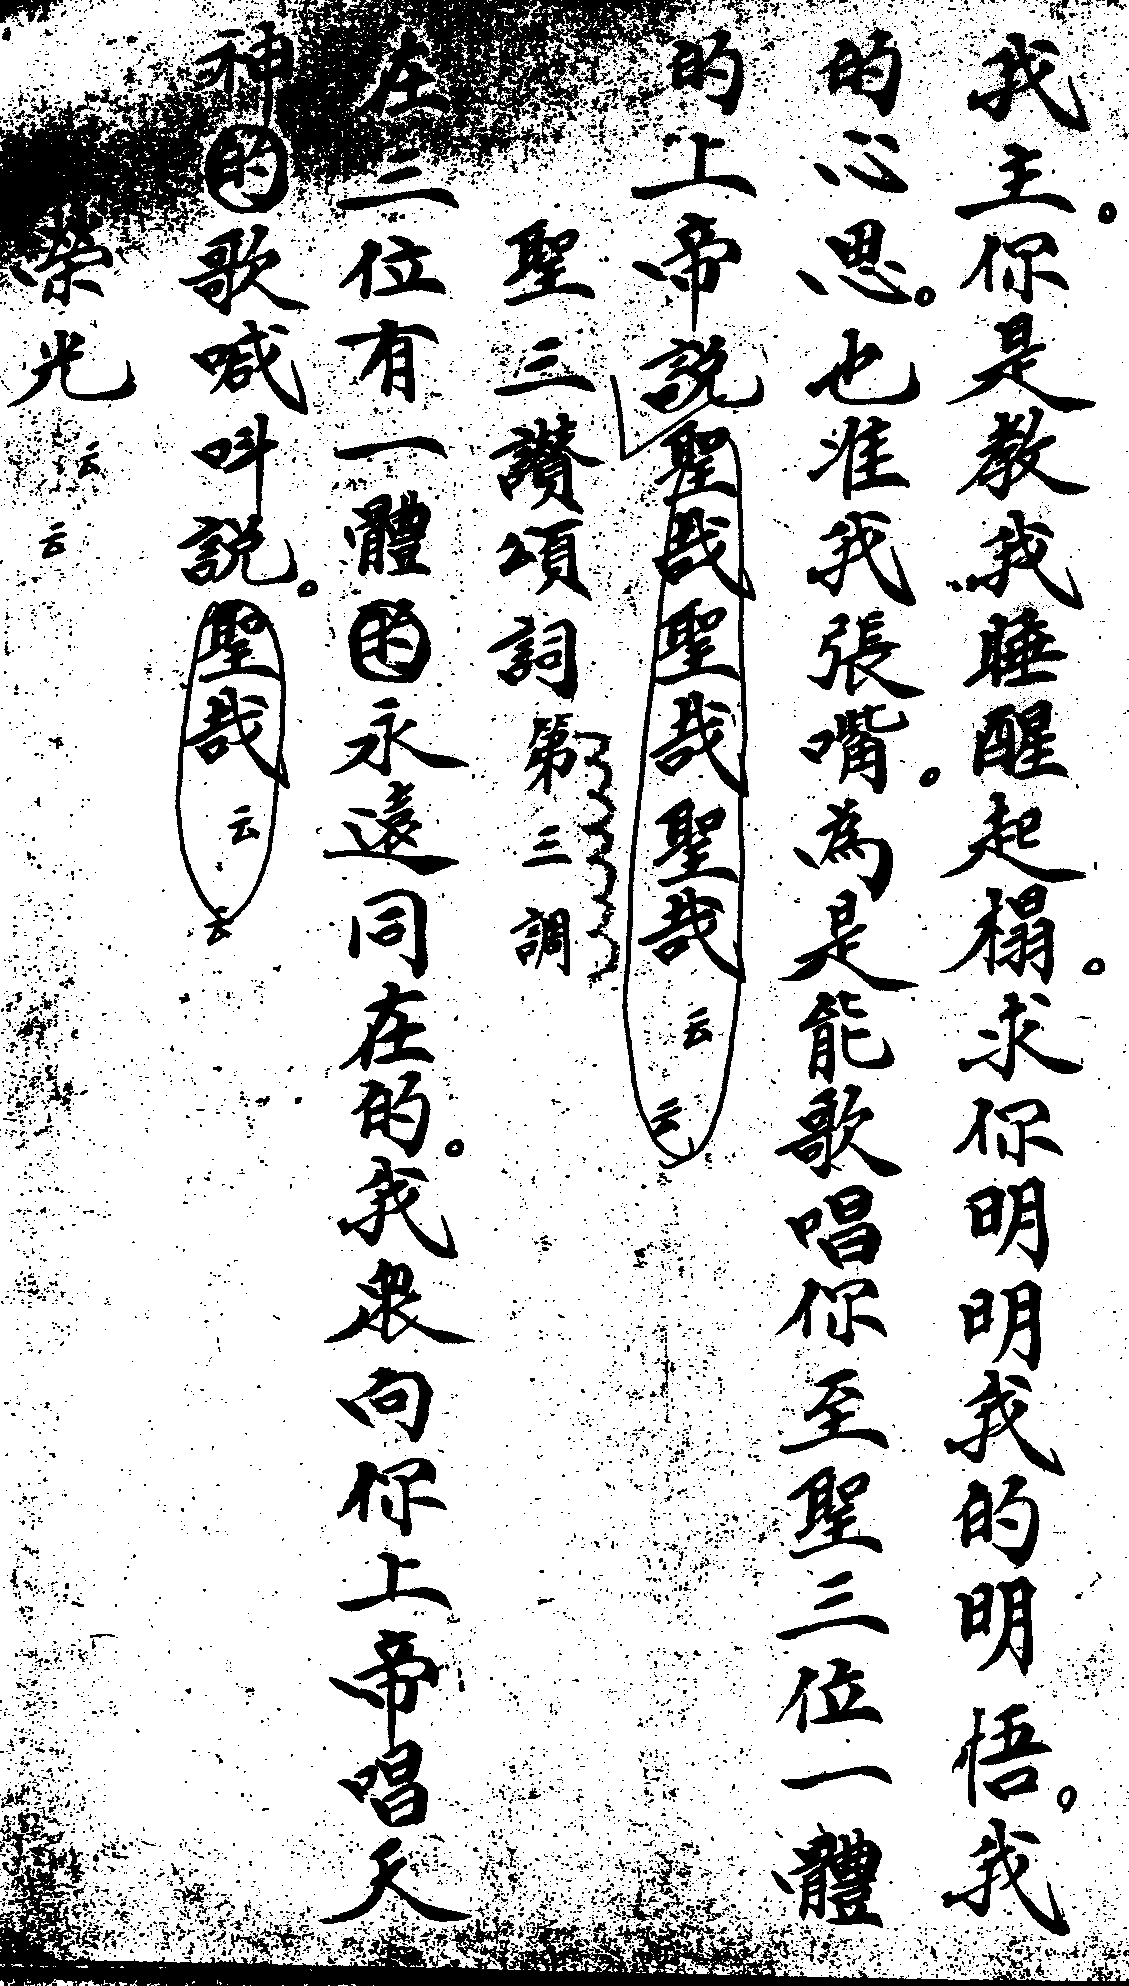 我主。你是教我睡醒起榻。求你明明我的明悟。我
的心思。也准我張嘴。為是能歌唱你至聖三位一體
的上帝說聖哉聖哉聖哉云云
聖三讚頌詞第三調
在三位有一體的永遠同在的。我衆向你上帝唱天
神的歌喊叫說。聖哉云云
榮光云云